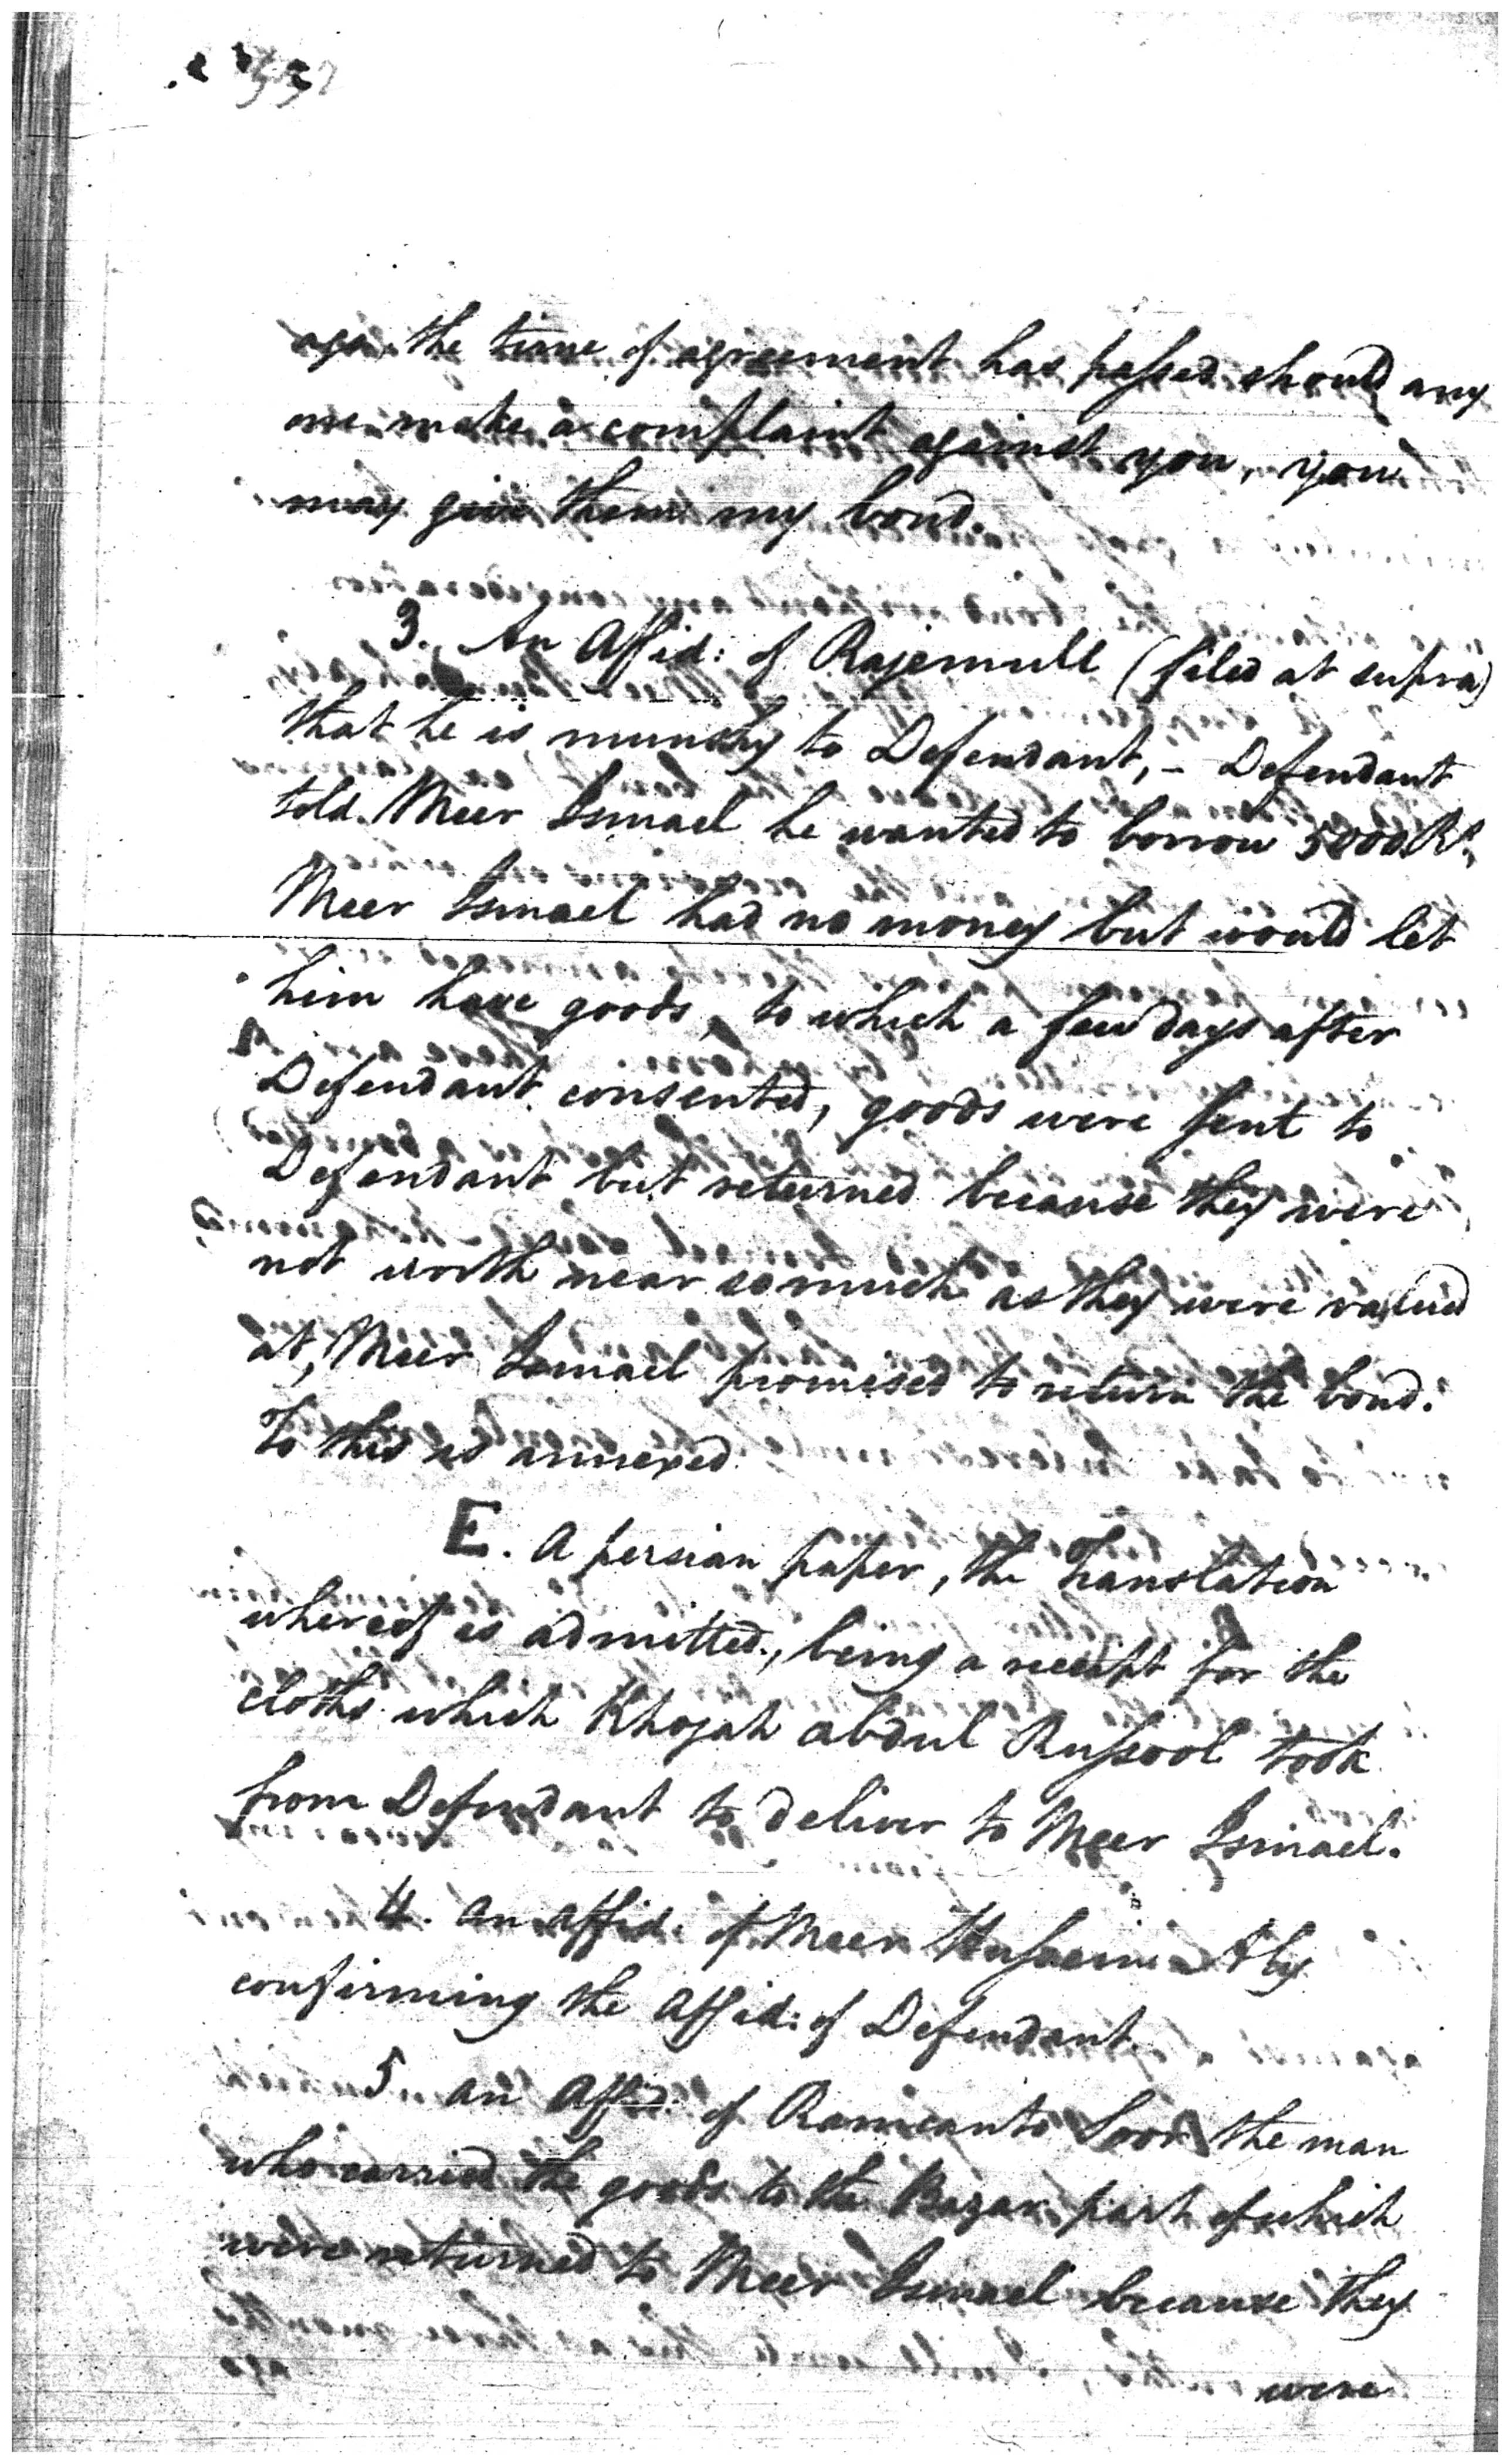 ago, the time of agreement has passed should any
one make a complaint against you, you
may give them my bond.
3. An Affid: of Rajemull (filed at supra)
that he is munshy to Defendant, – Defendant
told Meer Ismael he wanted to borrow 5000 Rs.
Meer Ismael had no money but would let
him have goods, to which a few days after
Defendant consented, goods were sent to
Defendant but returned because they were
not worth near so much as they were valued
at, Meer Ismael promised to return the bond.
To this is annexed
E. A persian paper, the Translation
whereof is admitted, being a receipt for the
cloths which Khojah abdul Russool took
from Defendant to deliver to Meer Ismael.
4. an affid: of Meer Hussein Aly
confirming the Affid: of Defendant.
5 an Affid: of Ramcanto Soor the man
who carried the goods to the Bazar part of which
were returned to Meer Ismael because they
were